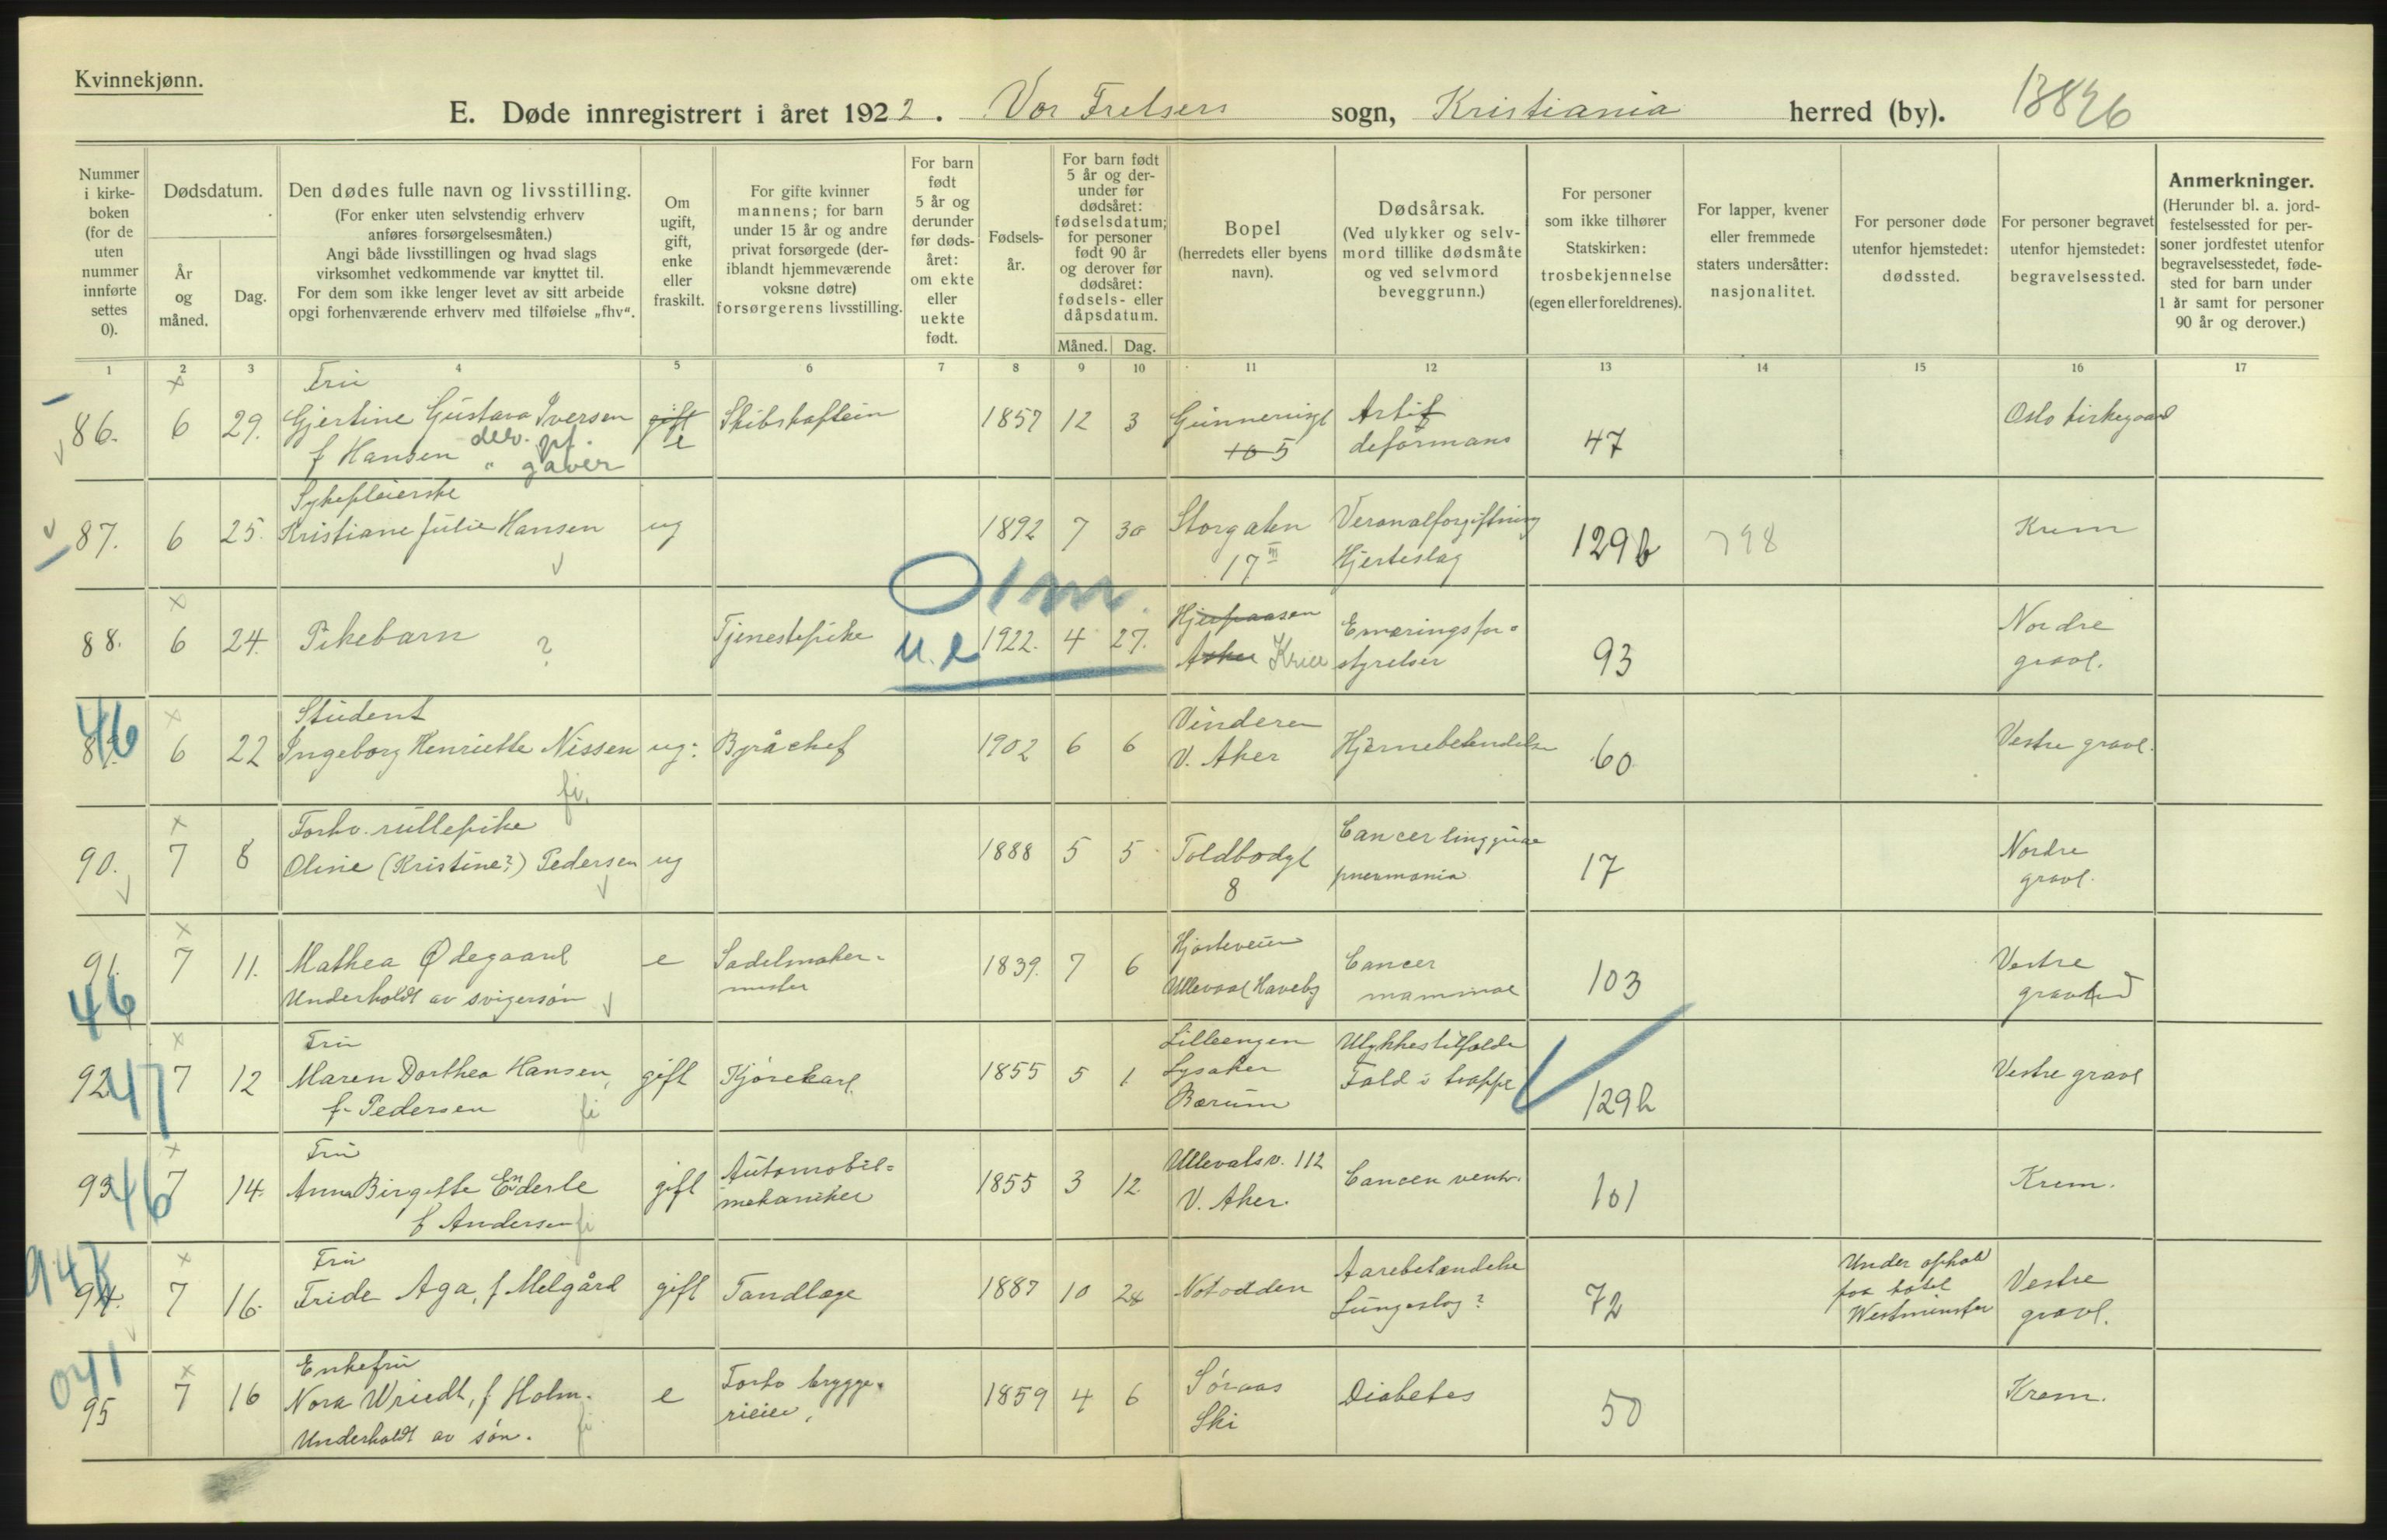 Kvinnekjønn.
E. Døde innregistrert i året 1922. Vor Frelsers sogn, Kristiania herred (by).
Nummer i kirke-boken (for de uten nummer innførte settes 0).
Dødsdatum.
År og måned.
Dag.
Den dødes fulle navn og livsstilling.
(For enker uten selvstendig erhverv
anføres forsørgelsesmåten.)
Angi både livsstillingen og hvad slags
virksomhet vedkommende var knyttet til.
For dem som ikke lenger levet av sitt arbeide
opgi forhenværende erhverv med tilføielse „fhv“.
Om ugift, gift, enke eller fraskilt.
For gifte kvinner
mannens; for barn
under 15 år og andre
privat forsørgede (der-
iblandt hjemmeværende
voksne døtre)
forsørgerens livsstilling.
For barn født 5 år og derunder før døds-året: om ekte eller uekte født.
Fødsels-år.
For barn født
5 år og der-
under før
dødsåret:
fødselsdatum;
for personer
født 90 år
og derover før
dødsåret:
fødsels- eller
dåpsdatum.
Måned. Dag.
Bopel
(herredets eller byens
navn).
Dødsårsak.
(Ved ulykker og selv-
mord tillike dødsmåte
og ved selvmord
beveggrunn.)
For personer
som ikke tilhører
Statskirken:
trosbekjennelse
(egen eller foreldrenes).
For lapper, kvener
eller fremmede
staters undersåtter:
nasjonalitet.
For personer døde
utenfor hjemstedet:
dødssted.
For personer begravet
utenfor hjemstedet:
begravelsessted.
Anmerkninger.
(Herunder bl. a. jord-
festelsessted for per-
soner jordfestet utenfor
begravelsesstedet, føde-
sted for barn under
1 år samt for personer
90 år og derover.)
1 2 3 4 5 6 7 8 9 10 11 12 13 14 15 16 17
Fru
86. 6 29. Gjertine Gustava Iversen gift Skibskaptein 1857 12 3 Oslo kirkegaard
f Hansen e 10 5 deformans 47
gaver
Sykepleierske
87. 6 25. Kristiane Julie Hansen ug 1892 7 30 Storgaten Veronalforgiftning Krem
17 III Hjerteslag 129b 798
88. 6 24. Pikebarn ? Tjenestepike u.e 1922. 4 27. Ernæringsfor-
styrrelser 93 Nordre
gravl.
Student Vinderen
46 89. 6 22 Ingeborg Henriette Nissen ug. Byråchef 1902 6 6 V. Aker Hjernebetendelse 60 Vestre gravl.
Forhv. rullepike Cancer linguae
90. 7 8 Oline (Kristine?) Pedersen ug 1888 5 5 Toldbodgt pneumonia 17 Nordre
8 gravl.
91. 7 11. Mathea Ødegaard e Sadelmaker- 1839. 7 6 Cancer 103 Vestre
46 Underholdt av svigersøn mester Ullevaal Haveby mammae
Fru Lilleengen Ulykkestilfælde
92. 47 7 12 Maren Dorthea Hansen, gift Kjørekarl 1855 5 1 Lysaker Fald i trappe Vestre gravl
f. Pedersen fi Bærum 129h
Fru Automobil- Ullevalsv. 112
93. 46 7 14. Anna Birgitte Enderle gift mekaniker 1855 3 12 V. Aker. Cancer ventr. 101 Krem.
f Andersen fi
Fru Aarebetændelse Under ophold
94. 7 16. Fride Aga, f Melgård gift Tandlæge 1887 10 28 Notodden Lungeslag? 72 paa hotel Vestre
Westminster gravl.
Enkefru Forhv brygge-
95 7 16 Nora Wriedt, f Holm. e rieier, 1859 4 6 Ski Diabetes 50 Krem.
Underholdt av søn. fi